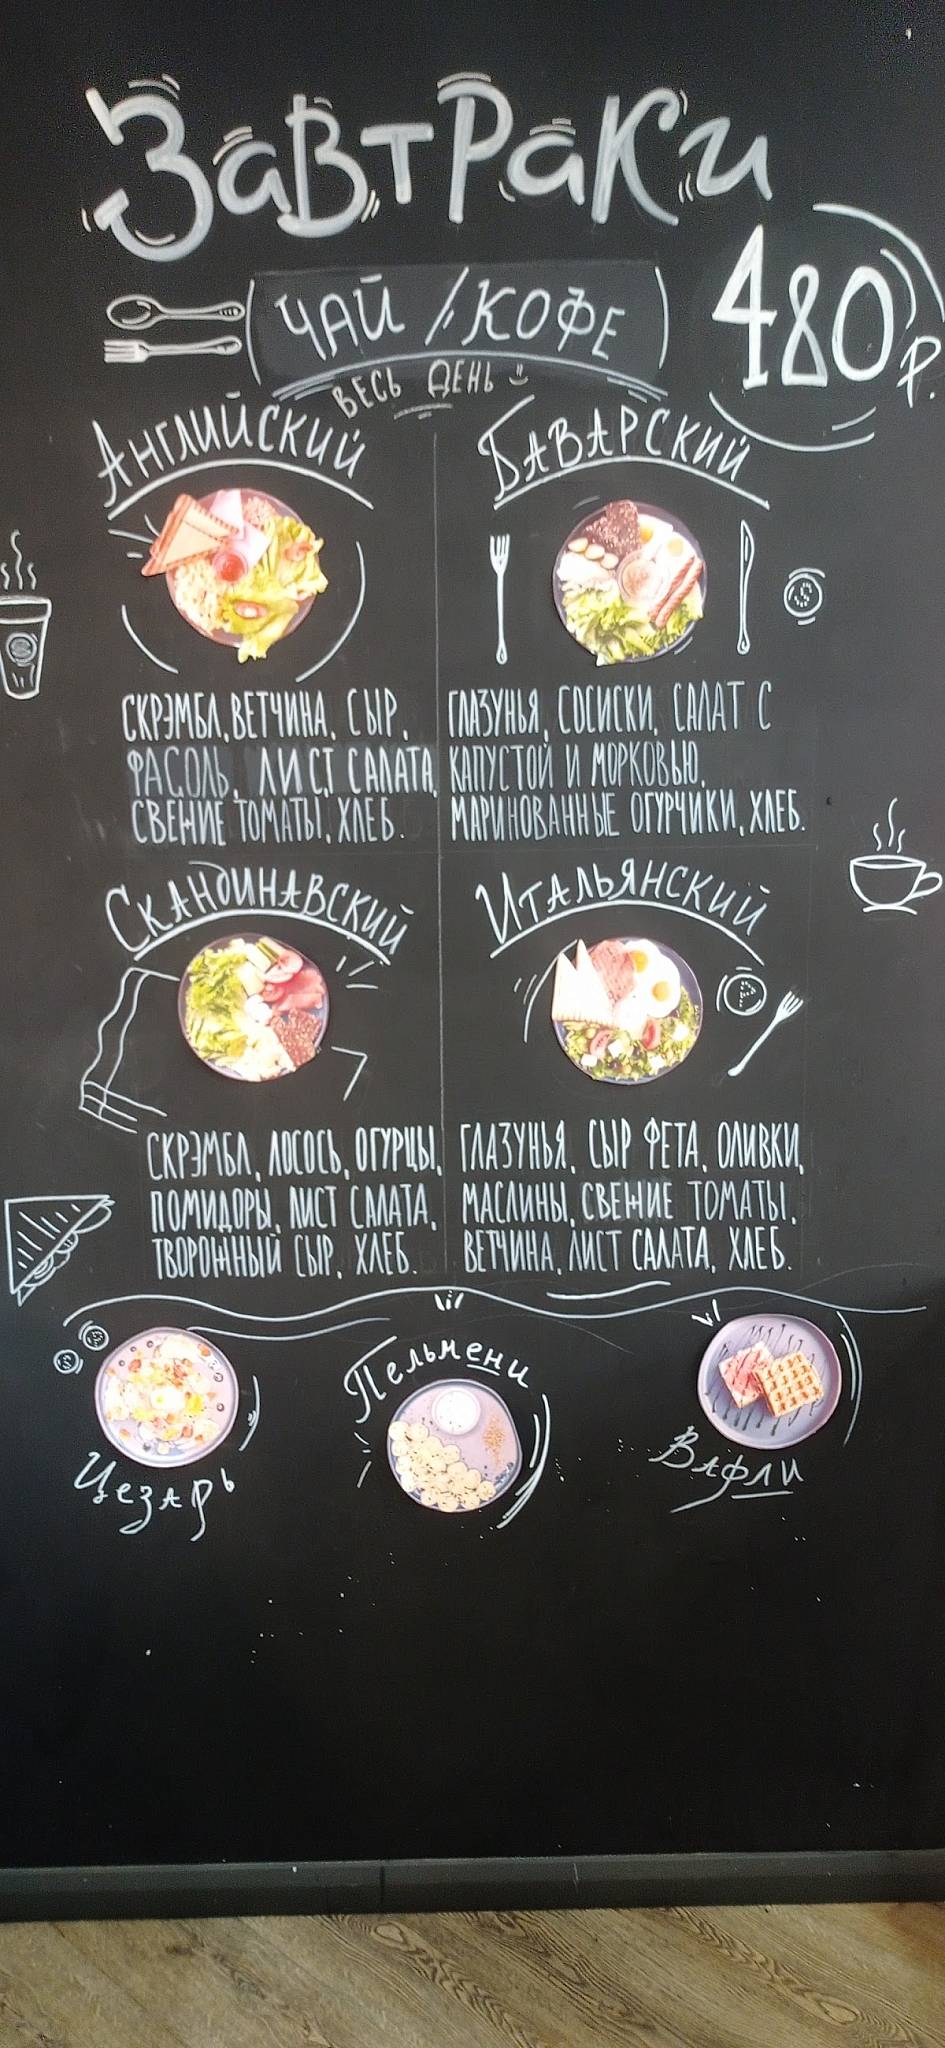 Завтраки
ЧАЙ / КОФЕ
480 р.
ВЕСЬ ДЕНЬ
Английский
СКРЭМБЛ, ВЕТЧИНА, СЫР,
ФАСОЛЬ, ЛИСТ САЛАТА,
СВЕЖИЕ ТОМАТЫ, ХЛЕБ.
БАВАРСКИЙ
ГЛАЗУНЬЯ, СОСИСКИ, САЛАТ С
КАПУСТОЙ И МОРКОВЬЮ,
МАРИНОВАННЫЕ ОГУРЧИКИ, ХЛЕБ.
Скандинавский
СКРЭМБЛ, ЛОСОСЬ, ОГУРЦЫ,
ПОМИДОРЫ, ЛИСТ САЛАТА,
ТВОРОЖНЫЙ СЫР, ХЛЕБ.
Итальянский
ГЛАЗУНЬЯ, СЫР ФЕТА, ОЛИВКИ,
МАСЛИНЫ, СВЕЖИЕ ТОМАТЫ,
ВЕТЧИНА, ЛИСТ САЛАТА, ХЛЕБ.
Цезарь
Пельмени
Вафли